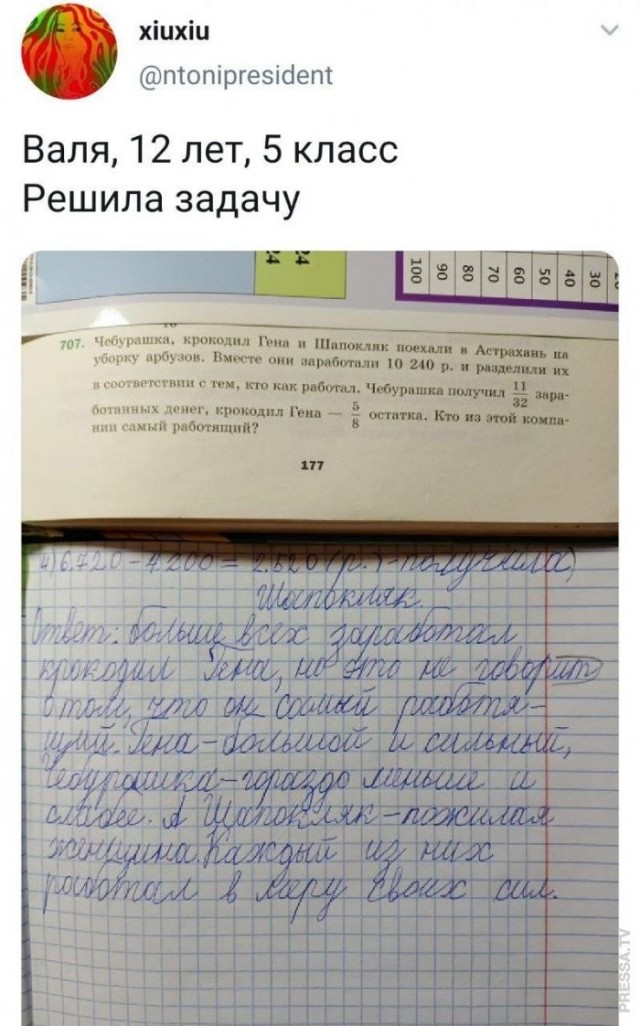 xiuxiu
@ntonipresident
Валя, 12 лет, 5 класс
Решила задачу
24
24
100
90
80
70
60
50
40
30
707. Чебурашка, крокодил Гена и Шапокляк поехали в Астрахань на
уборку арбузов. Вместе они заработали 10 240 р. и разделили их
в соответствии с тем, кто как работал. Чебурашка получил 11/32 зара-
ботанных денег, крокодил Гена — 5/8 остатка. Кто из этой компа-
нии самый работящий?
177
4) 6.720 - 4.200 = 2.520 (р.) - получила
Шапокляк.
Ответ: больше всех заработал
крокодил Гена, но это не говорит
о том, что он самый работя-
щий. Гена - большой и сильный,
Чебурашка - гораздо меньше и
слабее. А Шапокляк - пожилая
женщина. Каждый из них
работал в меру своих сил.
PRESSA.TV